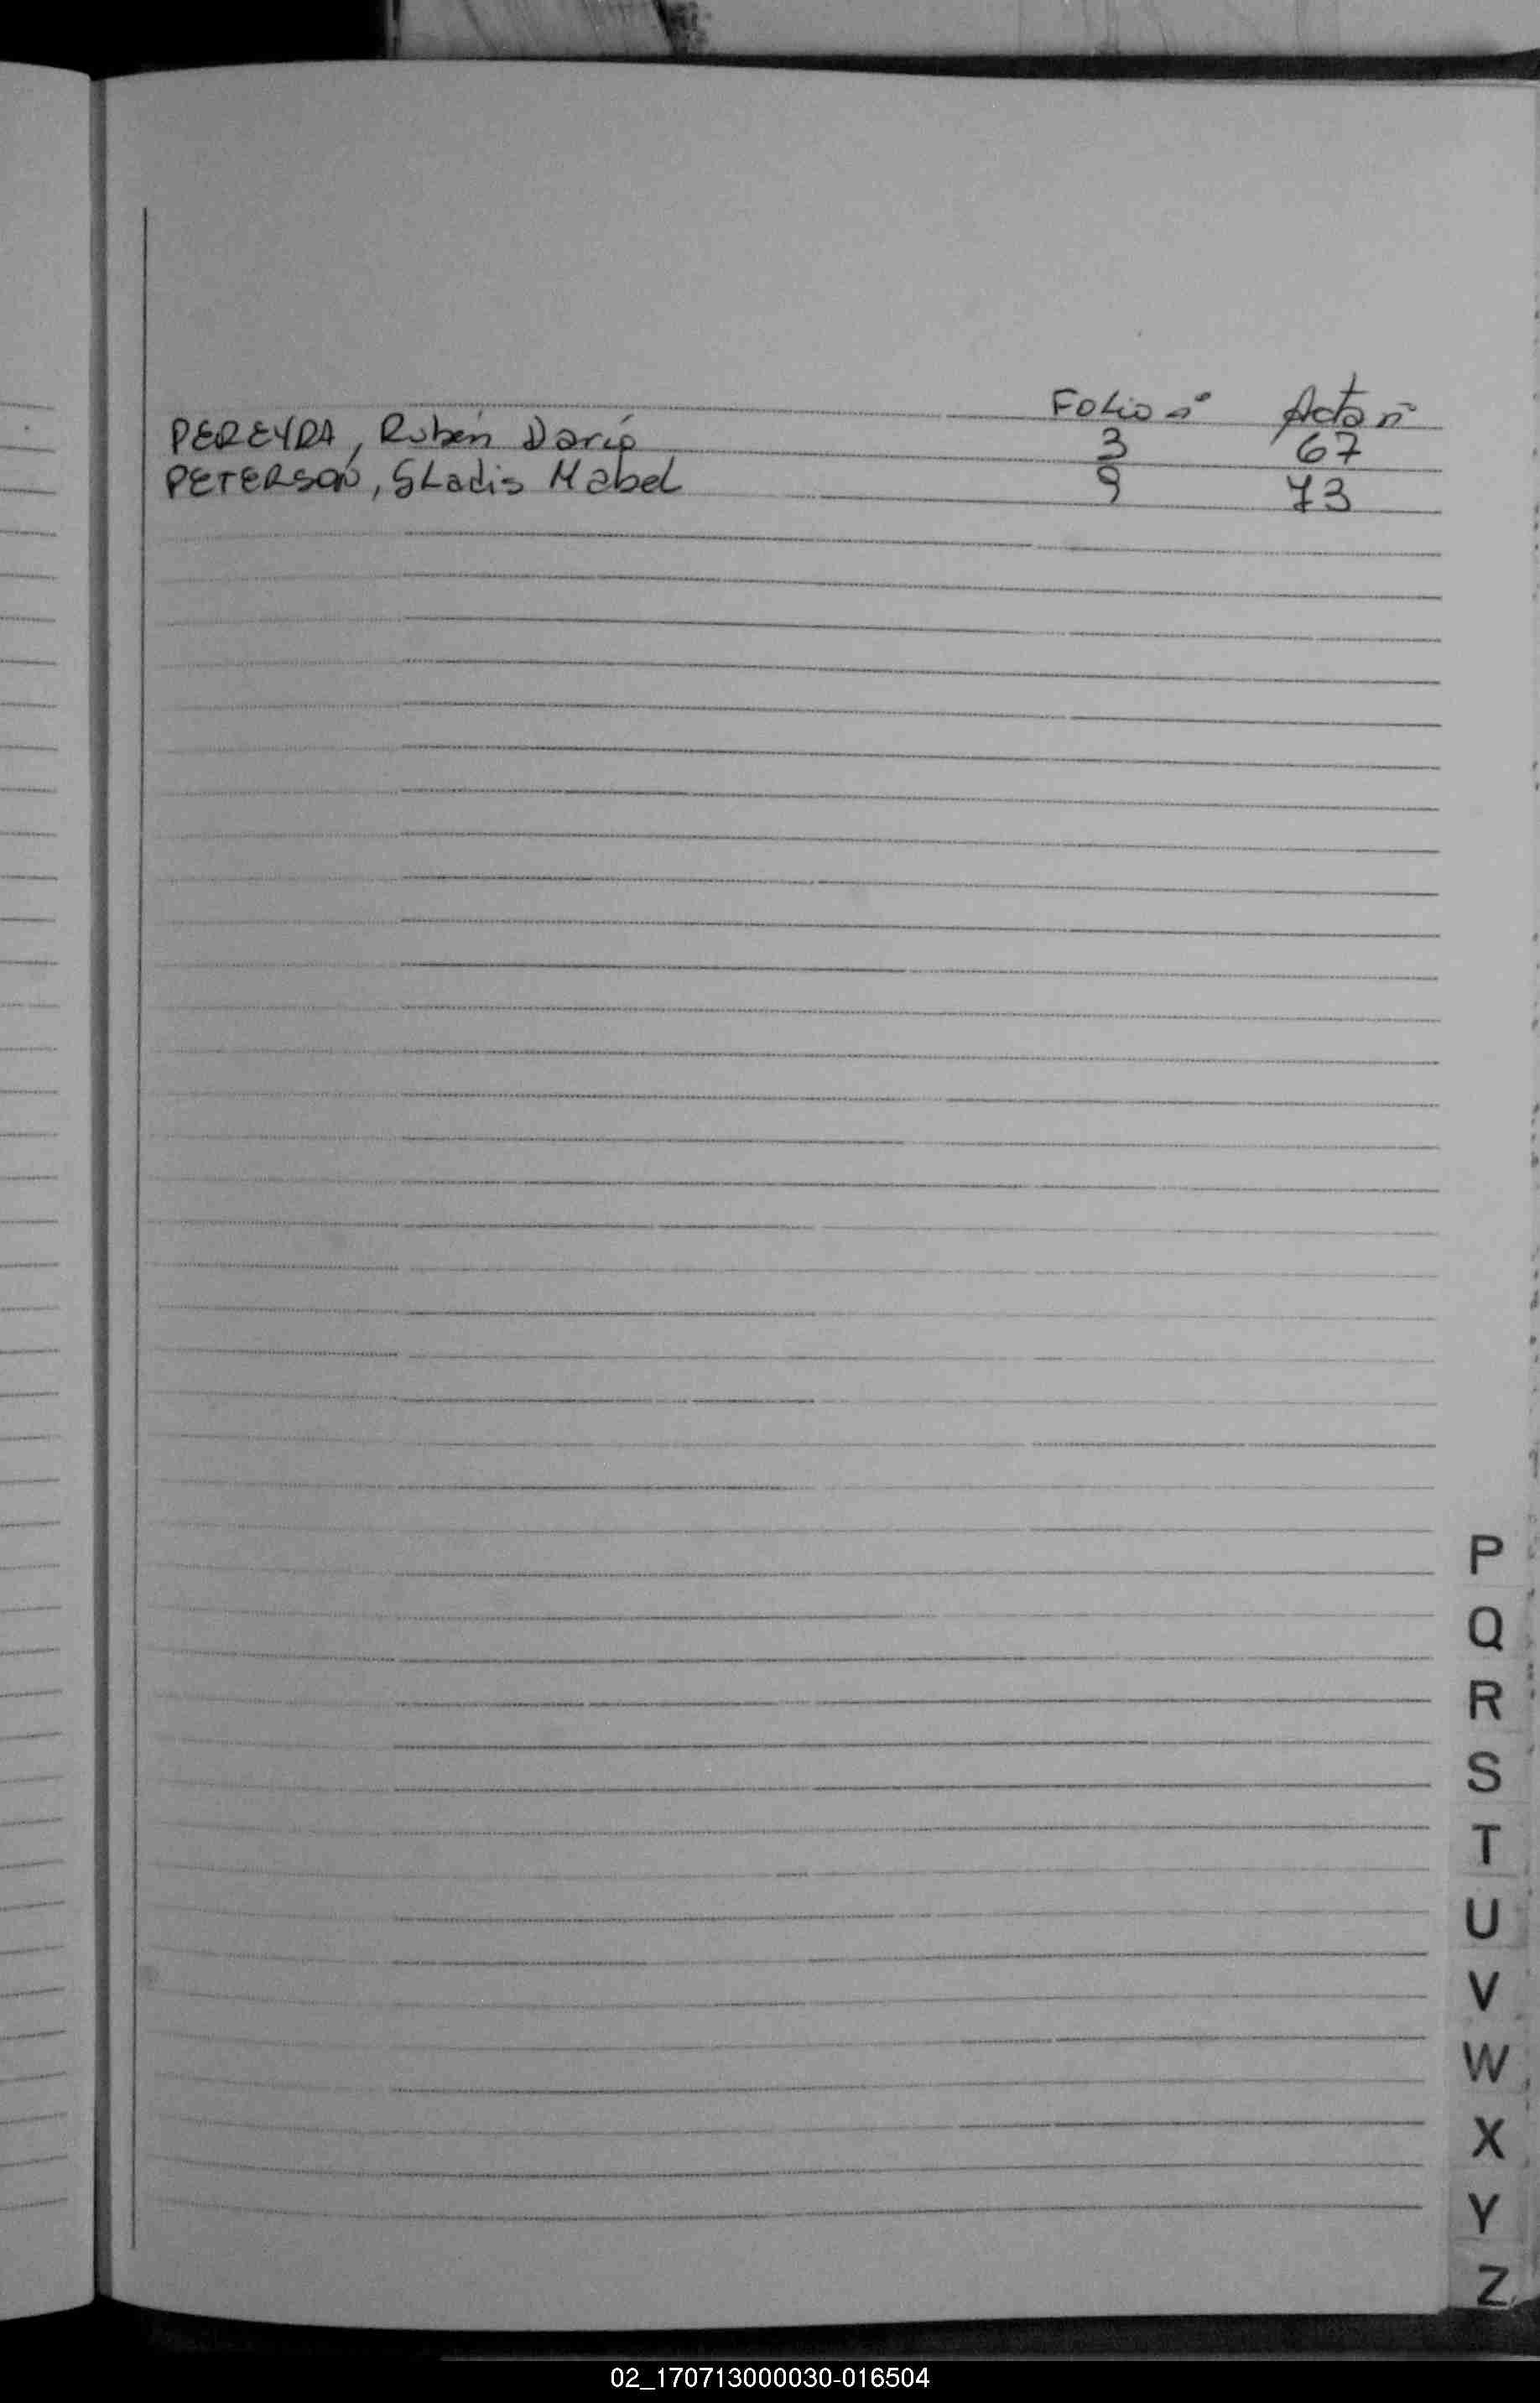 Folio n° Acta n°
PEREYRA, Rubén Darío 3 67
PETERSON, Gladis Mabel 9 73
P
Q
R
S
T
U
V
W
X
Y
Z
02_170713000030-016504